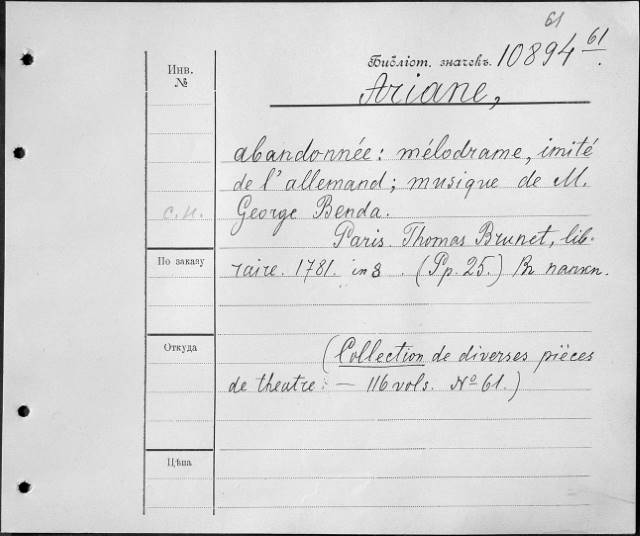 61
Библіот. значекъ. 10894 61.
Инв. №
Ariane,
abandonnée: mélodrame, imité
de l'allemand; musique de M.
с.н. George Benda.
Paris. Thomas Brunet, lib-
По заказу
raire. 1781. in 8. (Pp. 25.) Въ папкѣ.
Откуда
(Collection de diverses pièces
de theatre: — 116 vols. Nº 61.)
Цѣна